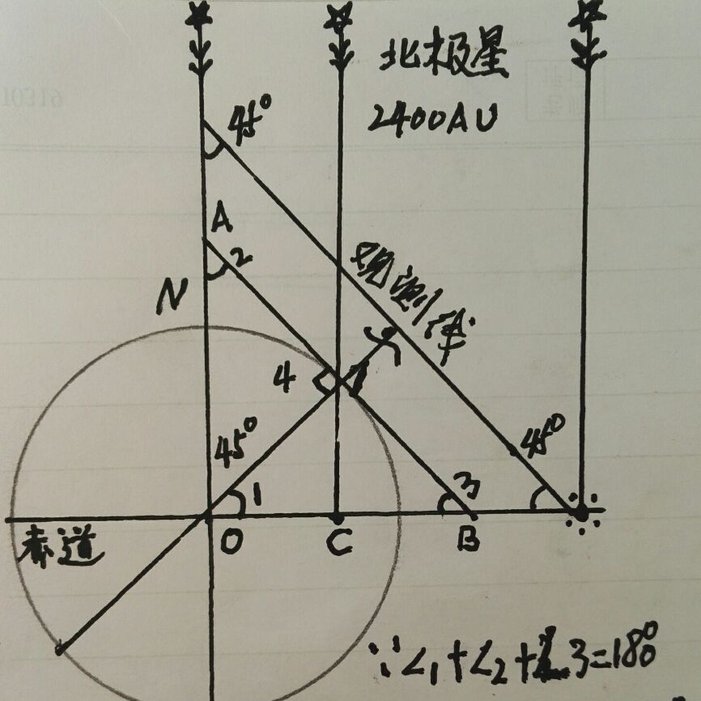 北极星
2400AU
45°
A
2
N
观测J体
4
45°
45°
1
3
赤道
O
C
B
∵∠1+∠2+∠3=180°